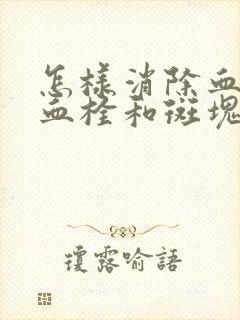 怎样消除血
血栓和斑塊
瓊露喻語